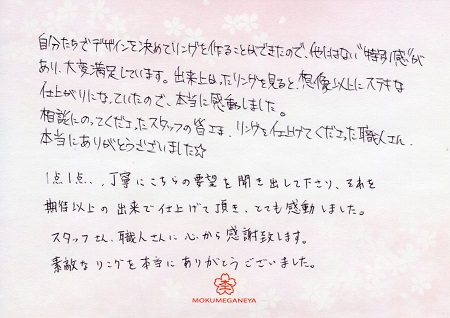 自分たちでデザインを決めてリングを作ることができたので、他にはない"特別感"が
あり、大変満足しています。出来上がったリングを見ると、想像以上にステキな
仕上がりになっていたので、本当に感動しました。
相談にのってくださったスタッフの皆さま、リングを仕上げてくださった職人さん、
本当にありがとうございました☆
1点1点、、丁寧にこちらの要望を聞き出して下さり、それを
期待以上の出来で仕上げて頂き、とても感動しました。
スタッフさん、職人さんに心から感謝致します。
素敵なリングを本当にありがとうございました。
MOKUMEGANEYA